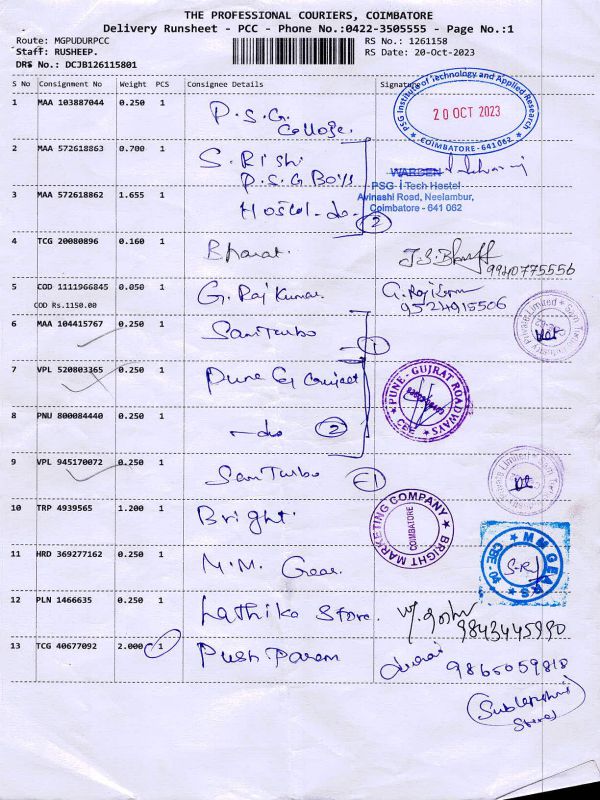 THE PROFESSIONAL COURIERS, COIMBATORE
Delivery Runsheet - PCC - Phone No.:0422-3505555 - Page No.:1
Route: MGPUDURPCC
RS No.: 1261158
Staff: RUSHEEP.
RS Date: 20-Oct-2023
DRS No.: DCJB126115801
S No Consignment No Weight PCS Consignee Details Signature
1 MAA 103887044 0.250 1 P.S.G. College.
PSG Institute of Technology and Applied Research
20 OCT 2023
COIMBATORE - 641 062
2 MAA 572618863 0.700 1 S. Rishi
P.S.G Boys
WARDEN
PSG iTech Hostel
Avinashi Road, Neelambur,
Coimbatore - 641 062
3 MAA 572618862 1.655 1 Hostel -do-
2
4 TCG 20080896 0.160 1 Bharat.
9940775556
5 COD 1111966845 0.050 1 G. Raj Kumar
G. Raj Kumar
9524915506
COD Rs.1150.00
6 MAA 104415767 0.250 1 Sam Turbo
1
Private Limited
7 VPL 520803365 0.250 1 Pune Gujraat
PUNE - GUJRAT ROADWAYS
CBE
8 PNU 800084440 0.250 1 -do
2
9 VPL 945170072 0.250 1 Sam Turbo 1
10 TRP 4939565 1.200 1 Bright.
BRIGHT MARKETING COMPANY
COIMBATORE
11 HRD 369277162 0.250 1 M.M. Gear
MM GEARS
CBE - 04
12 PLN 1466635 0.250 1 Lathika Store.
9843445990
13 TCG 40677092 2.000 1 Push Param
9865059818
Stores